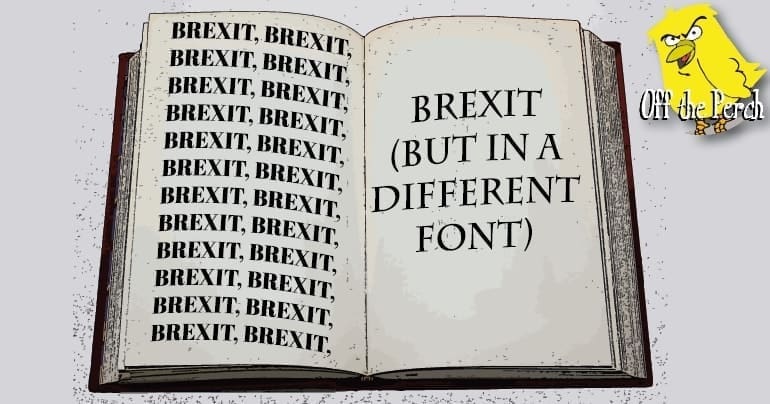 BREXIT, BREXIT,
BREXIT, BREXIT,
BREXIT, BREXIT,
BREXIT, BREXIT,
BREXIT, BREXIT,
BREXIT, BREXIT,
BREXIT, BREXIT,
BREXIT, BREXIT,
BREXIT, BREXIT,
BREXIT, BREXIT,
BREXIT, BREXIT,
BREXIT, BREXIT,
BREXIT
(BUT IN A
DIFFERENT
FONT)
Off the Perch